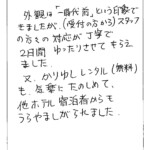 外観は「一時代前」という印象で
もましたが、(受付の方から)スタッフ
の方々の対応が丁寧で
2日間 ゆったりさせてもらえ
ました。
又、かりゆしレンタル(無料)
も、気軽にたのしめて、
他ホテル宿泊者からも
うらやましがられました。